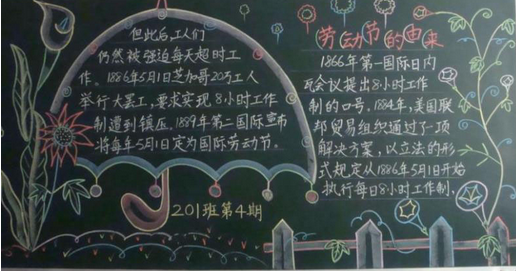 劳动节的由来
1866年第一国际日内
瓦会议提出8小时工作
制的口号。1884年,美国联
邦贸易组织通过了一项
解决方案,以立法的形
式规定从1886年5月1日开始
执行每日8小时工作制,
但此后,工人们
仍然被强迫每天超时工
作。1886年5月1日芝加哥20万工人
举行大罢工,要求实现8小时工作
制遭到镇压。1889年第二国际宣布
将每年5月1日定为国际劳动节。
201班第4期